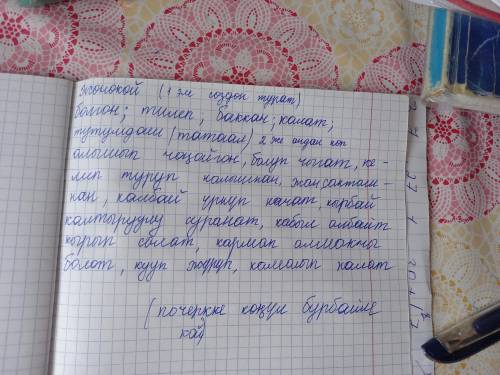 Жөнөкөй (1 эле сөздөн турат)
болгон; тилеп, баккан; калат;
тутумдаш (татаал) 2 же андан көп
алышып чоңойгон, болуп чыгат, ке-
лип туруп калышкан, жан сакташ-
кан, калбай үркүп качат, кырбай
калтырууну суранат, кабыл албайт
кырып салат, кармап алмакчы
болот, кууп жүрүп, камалып калат
(почеркке көңүл бурбайлы
кай)